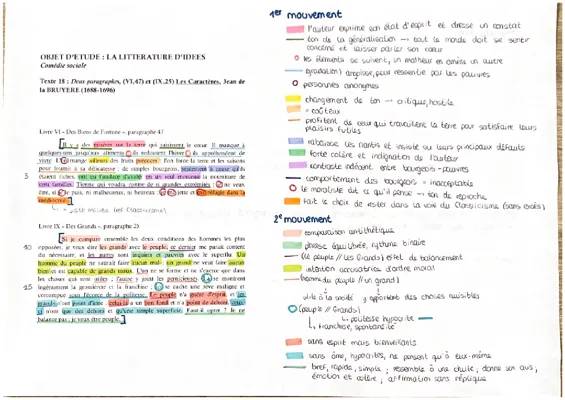 OBJET D'ETUDE : LA LITTERATURE D'IDEES
Comédie sociale
Texte 18 : Deux paragraphes, (VI,47) et (IX,25) Les Caractères, Jean de
la BRUYERE (1688-1696)
Livre VI – Des Biens de Fortune –, paragraphe 47
Il y a des misères sur la terre qui saisissent le cœur. Il manque à
quelques-uns jusqu'aux aliments ; ils redoutent l'hiver ; ils appréhendent de
vivre. L'on mange ailleurs des fruits précoces ; l'on force la terre et les saisons
pour fournir à sa délicatesse ; de simples bourgeois, seulement à cause qu'ils
5 étaient riches, ont eu l'audace d'avaler en un seul morceau la nourriture de
cent familles. Tienne qui voudra contre de si grandes extrémités : je ne veux
être, si je le puis, ni malheureux, ni heureux ; je me jette et me réfugie dans la
médiocrité.
Livre IX – Des Grands –, paragraphe 25
Si je compare ensemble les deux conditions des hommes les plus
opposées, je veux dire les grands avec le peuple, ce dernier me paraît content
du nécessaire, et les autres sont inquiets et pauvres avec le superflu. Un
homme du peuple ne saurait faire aucun mal ; un grand ne veut faire aucun
bien et est capable de grands maux. L'un ne se forme et ne s'exerce que dans
les choses qui sont utiles ; l'autre y joint les pernicieuses. Là se montrent
ingénument la grossièreté et la franchise ; ici se cache une sève maligne et
corrompue sous l'écorce de la politesse. Le peuple n'a guère d'esprit, et les
grands n'ont point d'âme : celui-là a un bon fond et n'a point de dehors ; ceux-
ci n'ont que des dehors et qu'une simple superficie. Faut-il opter ? Je ne
balance pas : je veux être peuple.
1er mouvement
l'auteur exprime son état d'esprit et dresse un constat
ton de la généralisation → tout le monde doit se sentir
concerné et laisser parler son cœur
les éléments se suivent, un malheur en amène un autre
(gradation) ampleur, peur ressentie par les pauvres
personnes anonymes
changement de ton → critique, hostile
= coûteux
profitent de ceux qui travaillent la terre pour satisfaire leurs
plaisirs futiles
rabaisse les nantis et insiste sur leurs principaux défauts
forte colère et indignation de l'auteur
contraste indécent entre bourgeois - pauvres
comportement des bourgeois = inacceptable
le moraliste dit ce qu'il pense → ton de reproche
fait le choix de rester dans la voie du Classicisme (sans excès)
2e mouvement
comparaison antithétique
phrase équilibrée, rythme binaire
(le peuple // les Grands) effet de balancement
intention accusatrice d'ordre moral
(homme du peuple // un grand)
utile à la société
apportent des choses nuisibles
(peuple // Grands)
↳ politesse hypocrite
↳ franchise, spontanéité
sans esprit mais bienveillants
sans âme, hypocrites, ne pensent qu'à eux-même
bref, rapide, simple ; ressemble à une chute ; donne son avis ;
émotion et colère ; affirmation sans réplique